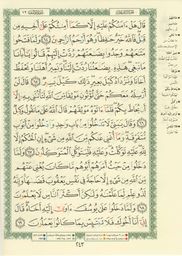 قَالَ هَلْ ءَامَنُكُمْ عَلَيْهِ إِلَّا كَمَآ أَمِنتُكُمْ عَلَىٰٓ أَخِيهِ مِن
قَبْلُ فَٱللَّهُ خَيْرٌ حَٰفِظًا وَهُوَ أَرْحَمُ ٱلرَّٰحِمِينَ ٦٤ وَلَمَّا فَتَحُوا۟
مَتَٰعَهُمْ وَجَدُوا۟ بِضَٰعَتَهُمْ رُدَّتْ إِلَيْهِمْ قَالُوا۟ يَٰٓأَبَانَا
مَا نَبْغِى هَٰذِهِۦ بِضَٰعَتُنَا رُدَّتْ إِلَيْنَا وَنَمِيرُ أَهْلَنَا وَنَحْفَظُ
أَخَانَا وَنَزْدَادُ كَيْلَ بَعِيرٍ ذَٰلِكَ كَيْلٌ يَسِيرٌ ٦٥ قَالَ لَنْ أُرْسِلَهُۥ
مَعَكُمْ حَتَّىٰ تُؤْتُونِ مَوْثِقًا مِّنَ ٱللَّهِ لَتَأْتُنَّنِى بِهِۦٓ إِلَّآ أَن
يُحَاطَ بِكُمْ فَلَمَّآ ءَاتَوْهُ مَوْثِقَهُمْ قَالَ ٱللَّهُ عَلَىٰ مَا نَقُولُ وَكِيلٌ ٦٦
وَقَالَ يَٰبَنِىَّ لَا تَدْخُلُوا۟ مِنۢ بَابٍ وَٰحِدٍ وَٱدْخُلُوا۟ مِنْ أَبْوَٰبٍ
مُّتَفَرِّقَةٍ وَمَآ أُغْنِى عَنكُم مِّنَ ٱللَّهِ مِن شَىْءٍ إِنِ ٱلْحُكْمُ إِلَّا لِلَّهِ
عَلَيْهِ تَوَكَّلْتُ وَعَلَيْهِ فَلْيَتَوَكَّلِ ٱلْمُتَوَكِّلُونَ ٦٧ وَلَمَّا دَخَلُوا۟
مِنْ حَيْثُ أَمَرَهُمْ أَبُوهُم مَّا كَانَ يُغْنِى عَنْهُم مِّنَ ٱللَّهِ
مِن شَىْءٍ إِلَّا حَاجَةً فِى نَفْسِ يَعْقُوبَ قَضَىٰهَا وَإِنَّهُۥ
لَذُو عِلْمٍ لِّمَا عَلَّمْنَٰهُ وَلَٰكِنَّ أَكْثَرَ ٱلنَّاسِ لَا يَعْلَمُونَ ٦٨
وَلَمَّا دَخَلُوا۟ عَلَىٰ يُوسُفَ ءَاوَىٰٓ إِلَيْهِ أَخَاهُ قَالَ
إِنِّىٓ أَنَا۠ أَخُوكَ فَلَا تَبْتَئِسْ بِمَا كَانُوا۟ يَعْمَلُونَ ٦٩
٢٤٣